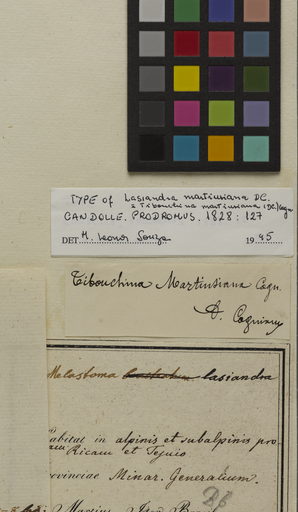 TYPE of Lasiandra martiusiana DC.
= Tibouchina martiusiana (DC.) Cogn.
CANDOLLE. PRODROMUS. 1828: 127
DET. M. Leonor Souza 1995
Tibouchina Martiusiana Cogn.
D. Cogniaux
Melastoma lasiandra
abitat in alpinis et subalpinis pro-
Ricam et Tejuio
ovinciae Minar. Generalium.
36
Martius Iter Br